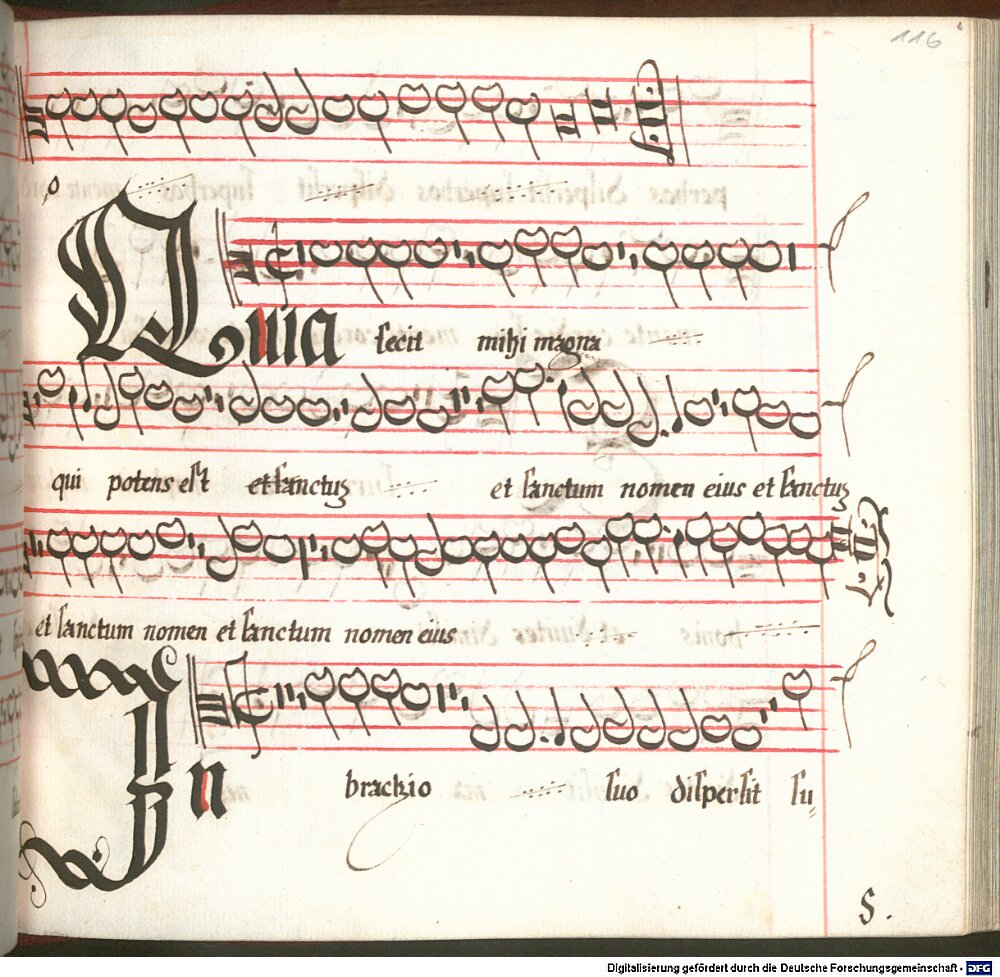 116
o
Quia fecit mihi magna
qui potens est et sanctuʒ et sanctum nomen eius et sanctuʒ
et sanctum nomen et sanctum nomen eius
In brachio suo dispersit su=
S.
Digitalisierung gefördert durch die Deutsche Forschungsgemeinschaft - DFG